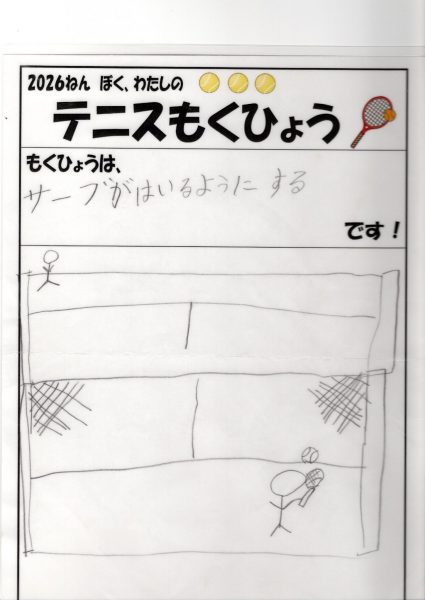 2026ねん ぼく、わたしの
テニスもくひょう
もくひょうは、
サーブがはいるように する
です！